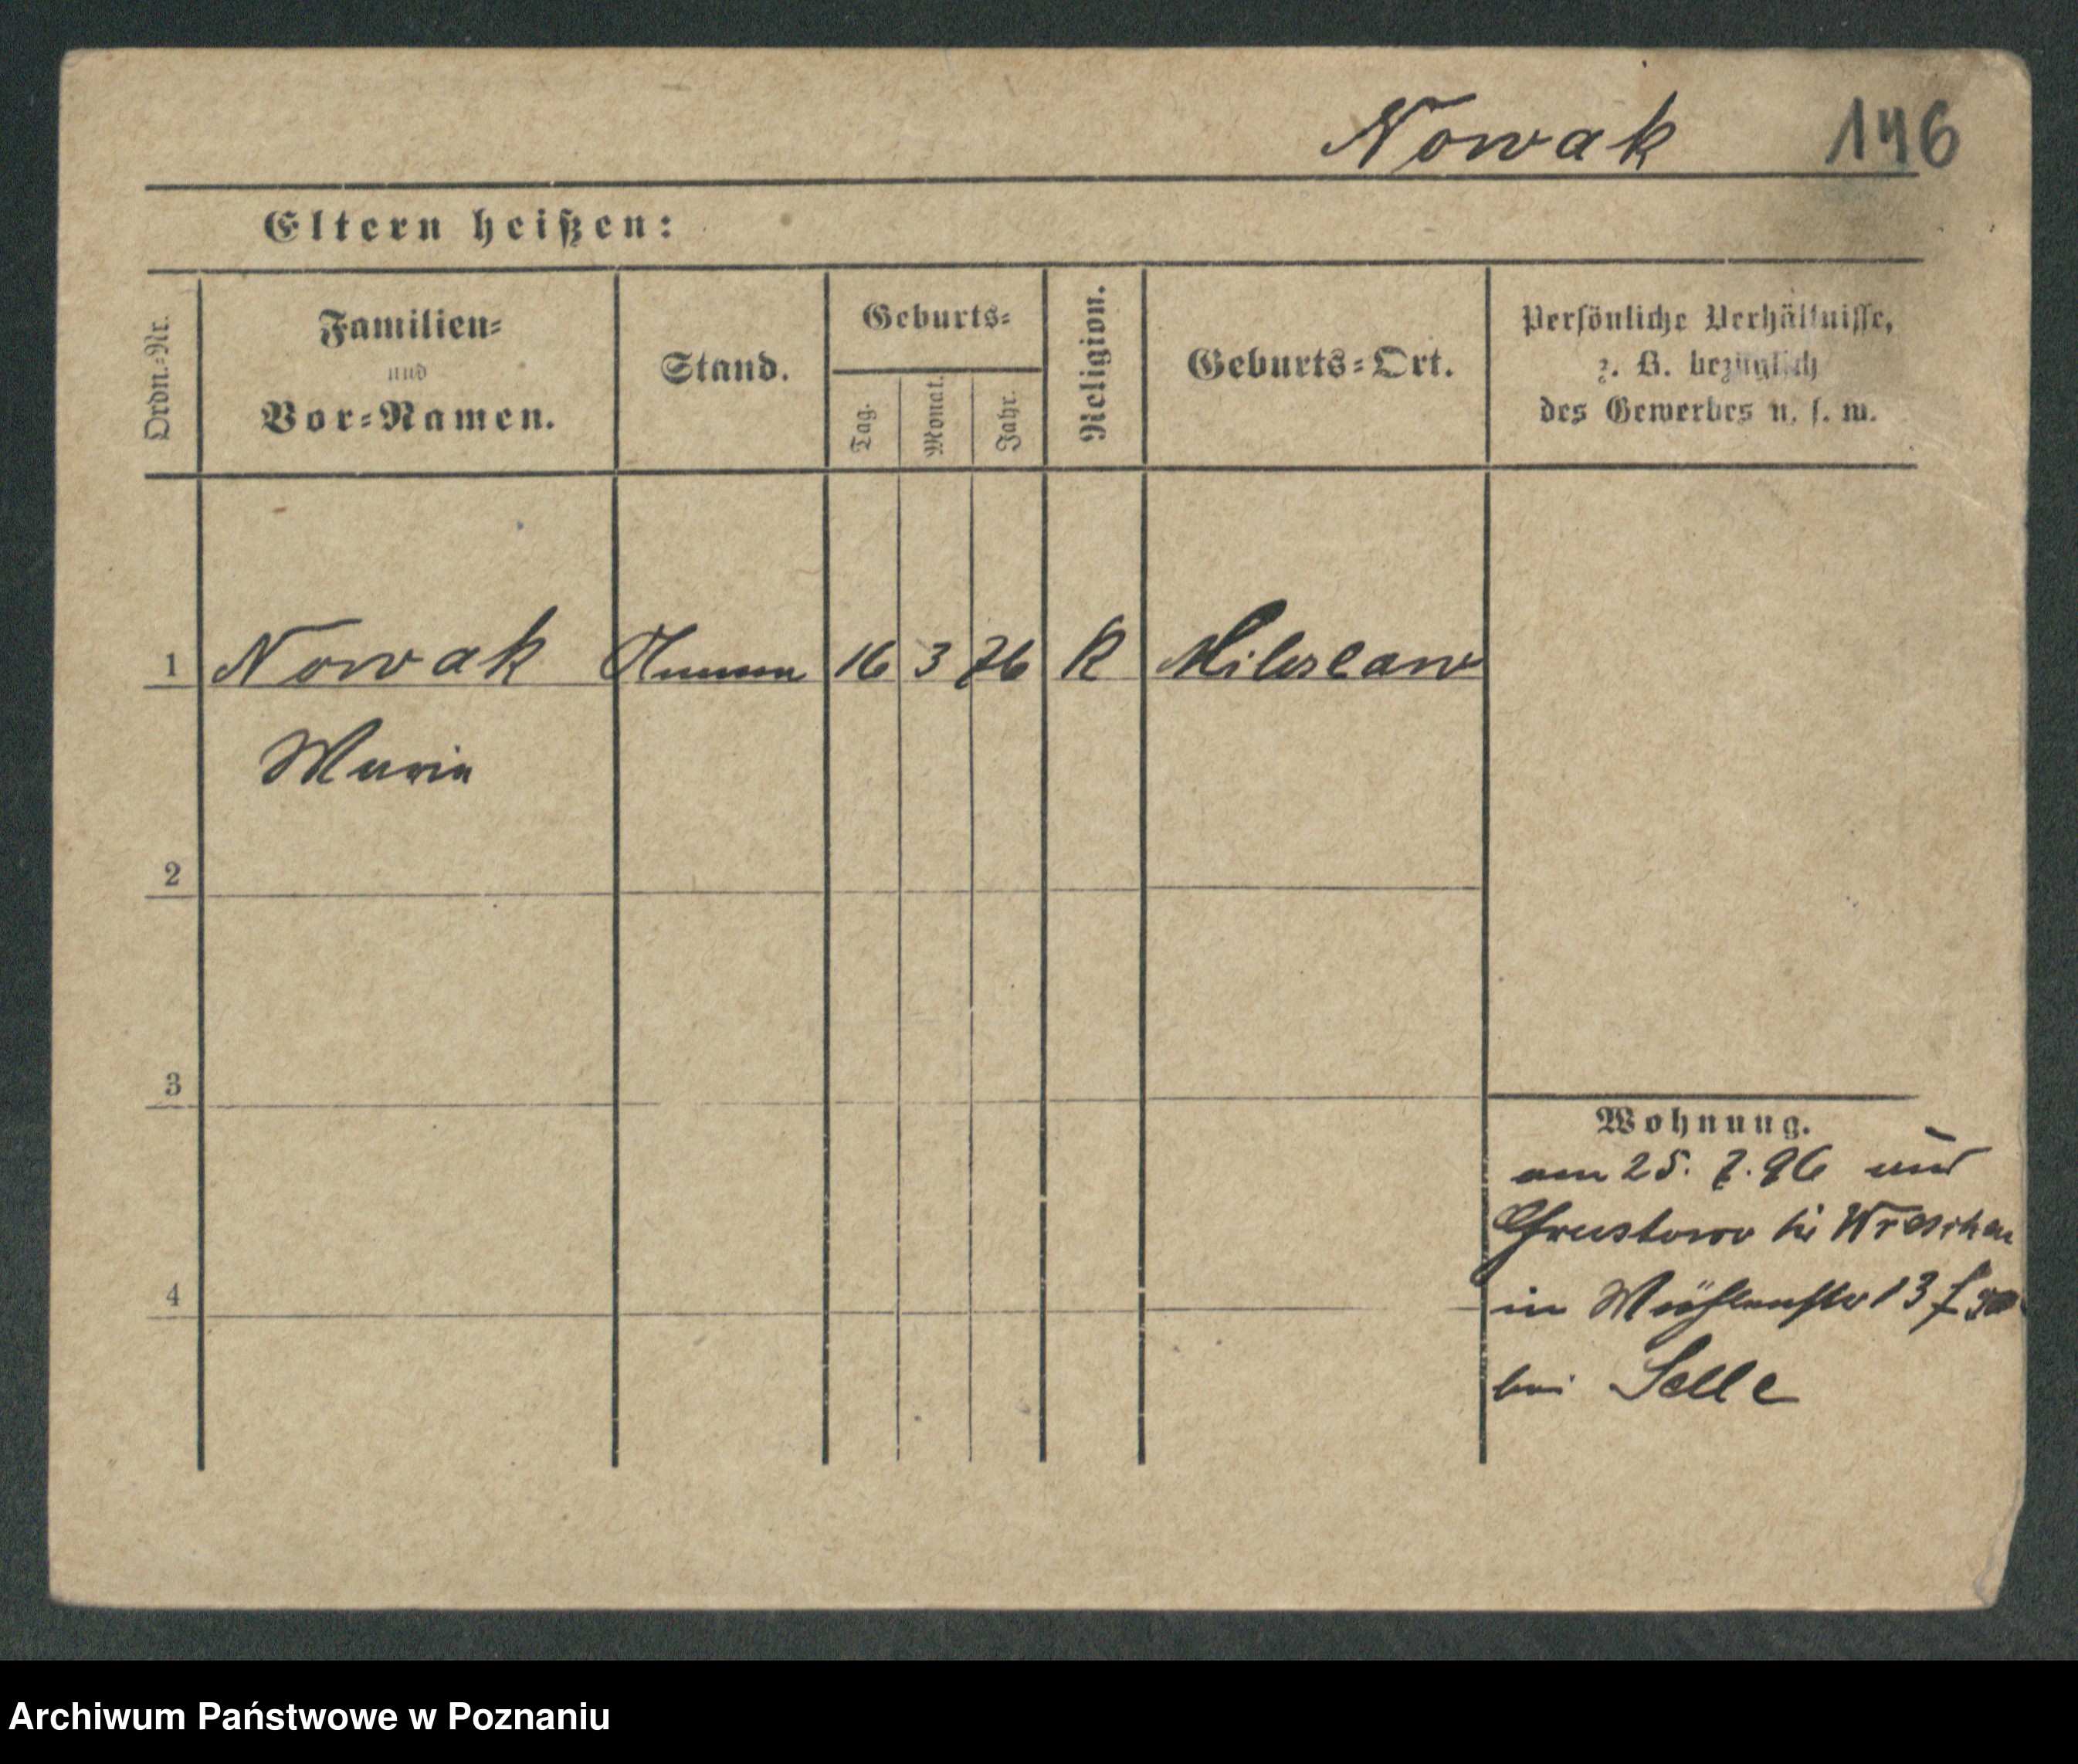 Nowak 146
Eltern heißen:
Ordn.-Nr.
Familien-
und
Vor-Namen.
Stand.
Geburts-
Tag.
Monat.
Jahr.
Religion.
Geburts-Ort.
Persönliche Verhältnisse,
z. B. bezüglich
des Gewerbes u. s. w.
1 Nowak Amme 16 3 76 K Miloslaw
Maria
2
3
4
Wohnung.
am 25. 7. 96 aus
bei Wreschen
in Mühlenstr 13
bei Selle
Archiwum Państwowe w Poznaniu